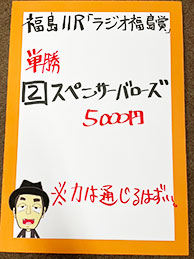 福島11R「ラジオ福島賞」
単勝
2 スペンサーバローズ
5000円
※力は通じるはず…!